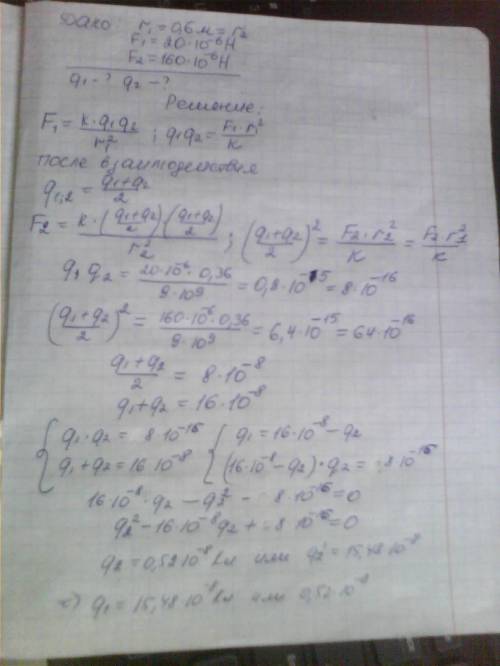 Дано: r₁ = 0,6 м = r₂
F₁ = 20·10⁻⁶ Н
F₂ = 160·10⁻⁶ Н
q₁ - ? q₂ - ?
Решение:
F₁ = k·q₁q₂/r₁² ; q₁q₂ = F₁·r₁²/k
после взаимодействия
q₁,₂ = (q₁+q₂)/2
F₂ = k·((q₁+q₂)/2)((q₁+q₂)/2)/r₂² ; ((q₁+q₂)/2)² = F₂·r₂²/k = F₂·r₁²/k
q₁q₂ = 20·10⁻⁶·0,36/9·10⁹ = 0,8·10⁻¹⁵ = 8·10⁻¹⁶
((q₁+q₂)/2)² = 160·10⁻⁶·0,36/9·10⁹ = 6,4·10⁻¹⁵ = 64·10⁻¹⁶
(q₁+q₂)/2 = 8·10⁻⁸
q₁+q₂ = 16·10⁻⁸
{ q₁·q₂ = 8·10⁻¹⁶ { q₁ = 16·10⁻⁸ - q₂
q₁+q₂ = 16·10⁻⁸ (16·10⁻⁸ - q₂)·q₂ = 8·10⁻¹⁶
16·10⁻⁸·q₂ - q₂² - 8·10⁻¹⁶ = 0
q₂² - 16·10⁻⁸q₂ + 8·10⁻¹⁶ = 0
q₂ = 0,52·10⁻⁸ Кл или q₂ = 15,48·10⁻⁸
=> q₁ = 15,48·10⁻⁸ Кл или 0,52·10⁻⁸